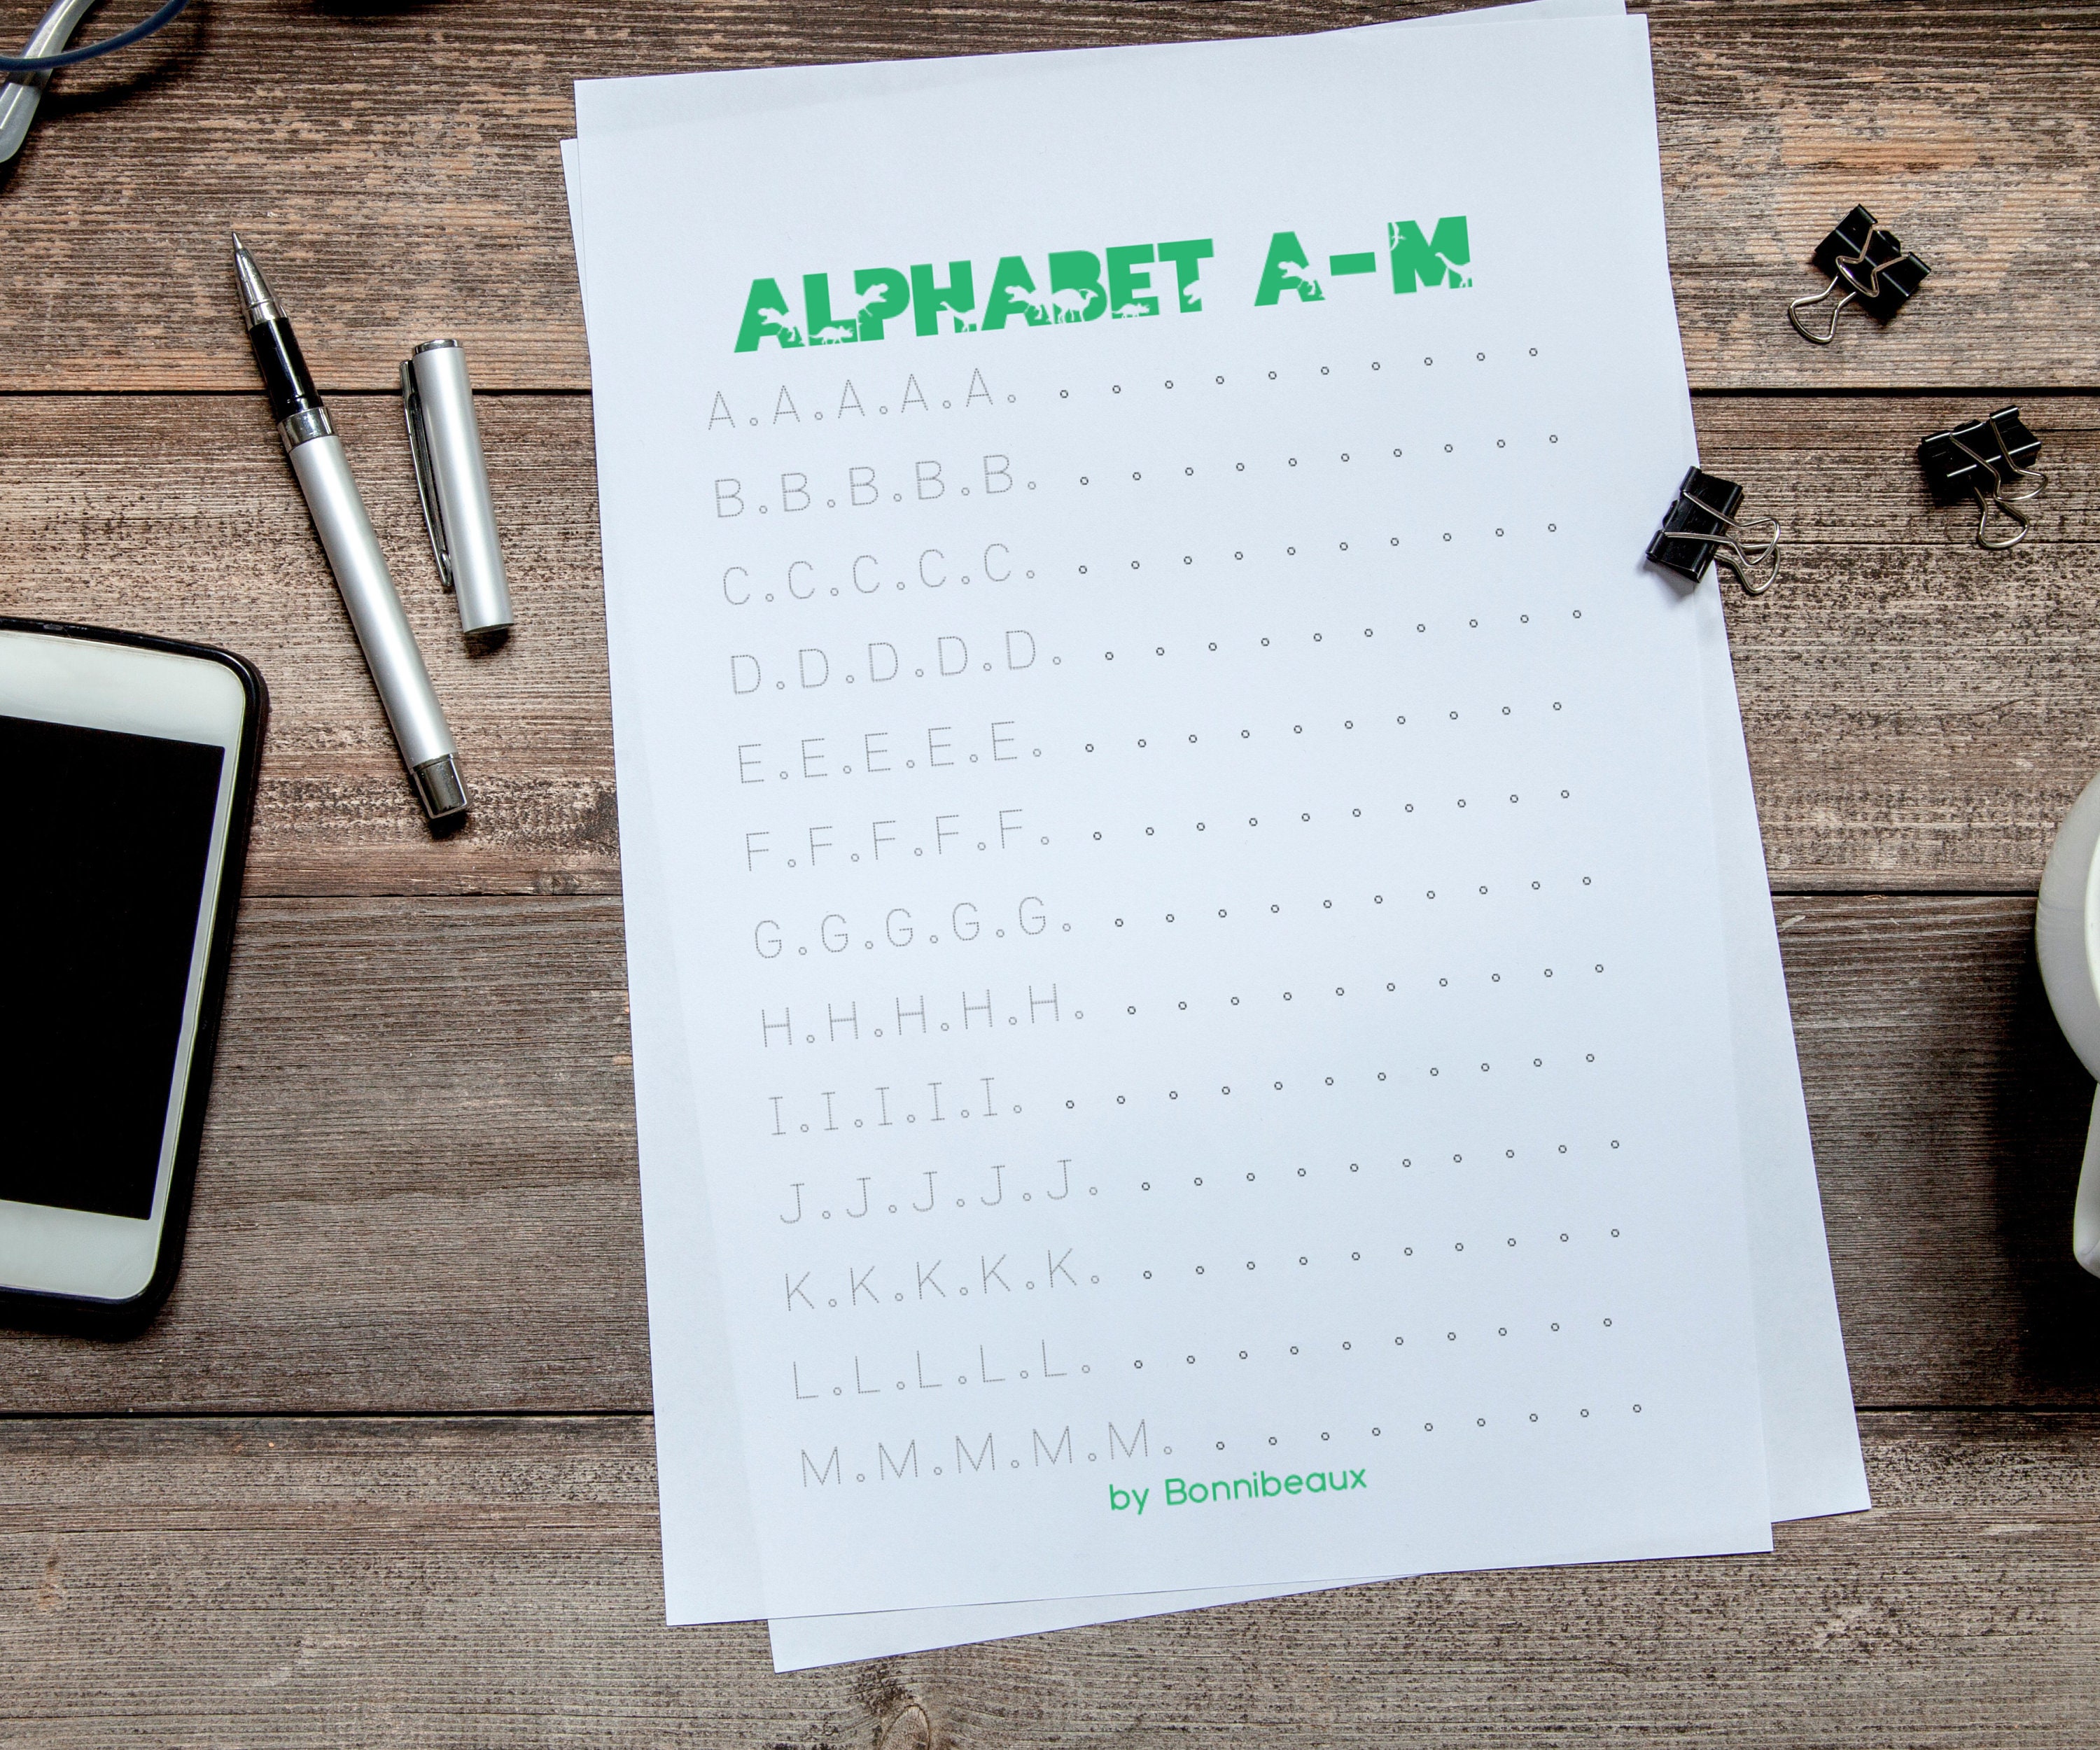 ALPHABET A-M
A.A.A.A.A. . . . . . . . . . .
B.B.B.B.B. . . . . . . . . . .
C.C.C.C.C. . . . . . . . . . .
D.D.D.D.D. . . . . . . . . . .
E.E.E.E.E. . . . . . . . . . .
F.F.F.F.F. . . . . . . . . . .
G.G.G.G.G. . . . . . . . . . .
H.H.H.H.H. . . . . . . . . . .
I.I.I.I.I. . . . . . . . . . . .
J.J.J.J.J. . . . . . . . . . .
K.K.K.K.K. . . . . . . . . . .
L.L.L.L.L. . . . . . . . . . .
M.M.M.M.M. . . . . . . . . .
by Bonnibeaux